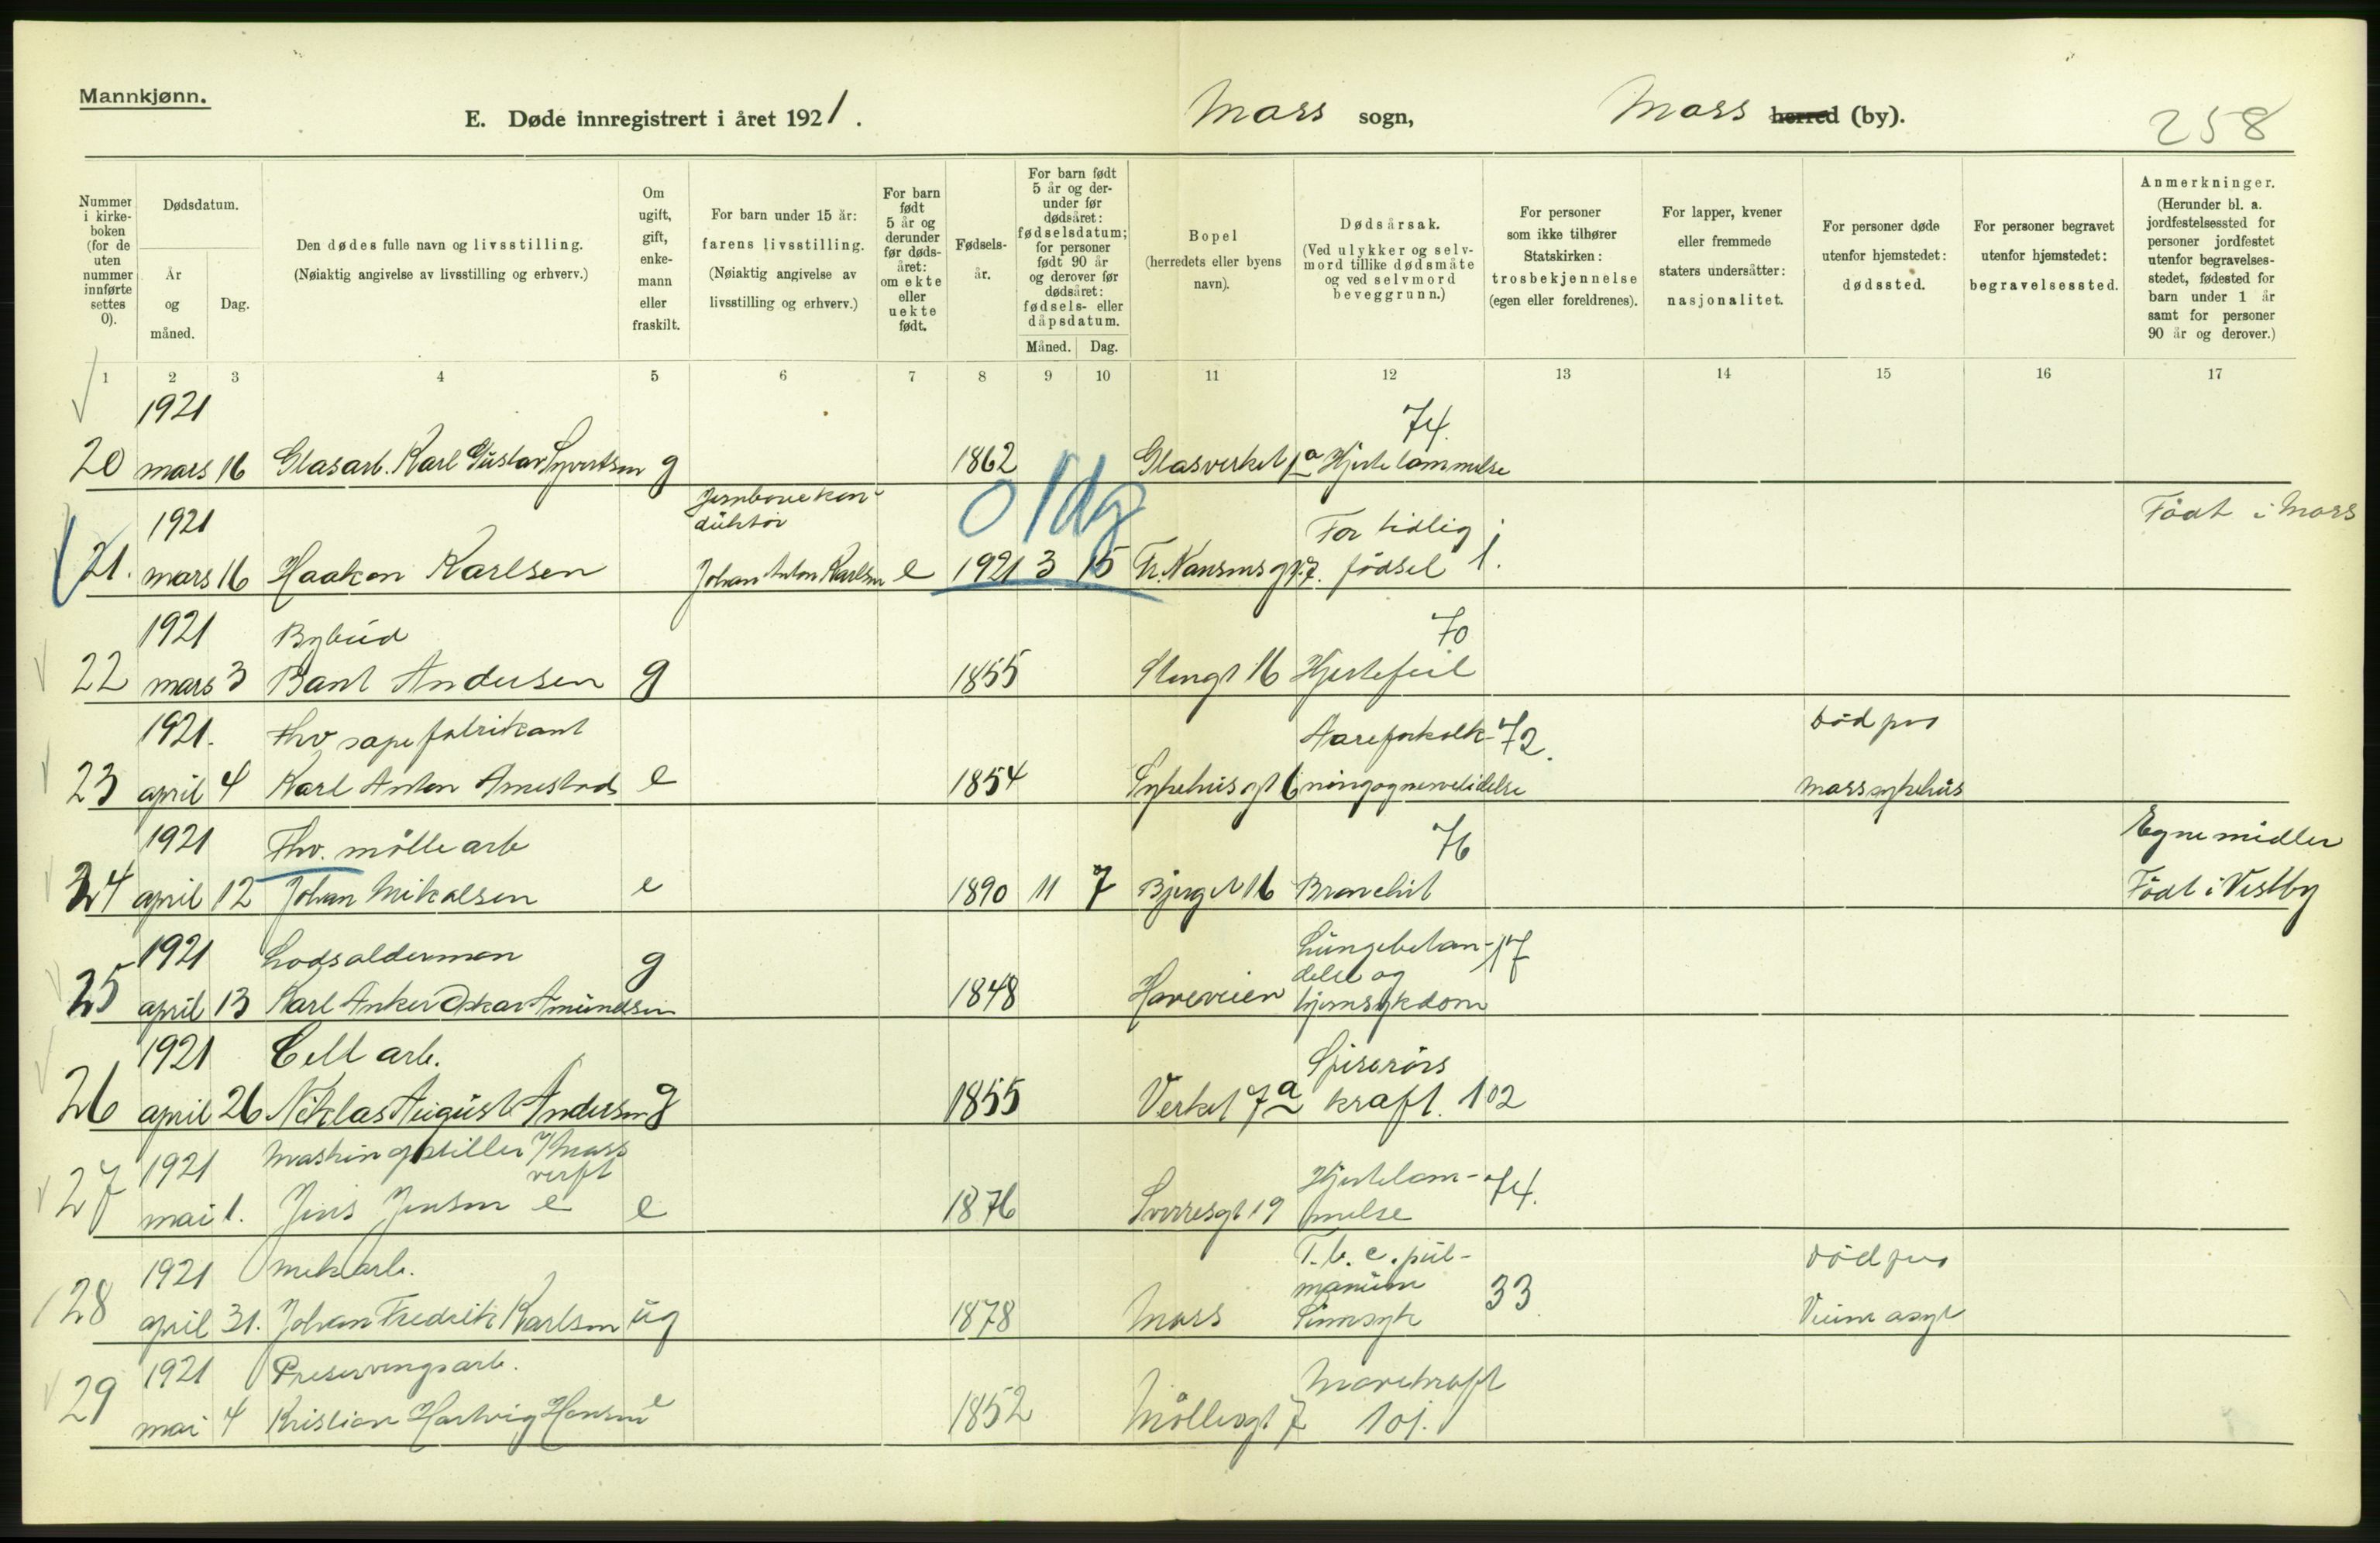 Mannkjønn.
E. Døde innregistrert i året 1921.
Moss sogn,
Moss herred (by).
258
Nummer i kirkeboken (for de uten nummer innførte settes 0).
Dødsdatum.
År og måned.
Dag.
Den dødes fulle navn og livsstilling. (Nøiaktig angivelse av livsstilling og erhverv.)
Om ugift, gift, enkemann eller fraskilt.
For barn under 15 år: farens livsstilling. (Nøiaktig angivelse av livsstilling og erhverv.)
For barn født 5 år og derunder før dødsåret: om ekte eller uekte født.
Fødselsår.
For barn født 5 år og derunder før dødsåret: fødselsdatum; for personer født 90 år og derover før dødsåret: fødsels- eller dåpsdatum.
Måned. Dag.
Bopel (herredets eller byens navn).
Dødsårsak. (Ved ulykker og selvmord tillike dødsmåte og ved selvmord beveggrunn.)
For personer som ikke tilhører Statskirken: trosbekjennelse (egen eller foreldrenes).
For lapper, kvener eller fremmede staters undersåtter: nasjonalitet.
For personer døde utenfor hjemstedet: dødssted.
For personer begravet utenfor hjemstedet: begravelsessted.
Anmerkninger. (Herunder bl. a. jordfestelsessted for personer jordfestet utenfor begravelsesstedet, fødested for barn under 1 år samt for personer 90 år og derover.)
1 2 3 4 5 6 7 8 9 10 11 12 13 14 15 16 17
1921 74.
20 mars 16 Glasarb. Karl Gustav Syvertsen g 1862 Glasverket 1a Hjertelammelse
1921 Jernbanekonduktør 0 1dg For tidlig Født i Moss
21. mars 16 Haakon Karlsen Johan Anton Karlsen e 1921 3 15 Fr. Nansensgt 7. fødsel 1.
1921 Bybud 70
22 mars 3 Bant Andersen g 1855 16 Hjertefeil
1921. Fhv sapefabrikant Aareforkalk- 72. Død paa
23 april 4 Karl Anton e 1854 Sykehusgt 6 ning og nervelidelse Moss sykehus
1921 Fhv. møllearb 76 Egne midler
24 april 12 Johan Mikalsen e 1890 11 7 Bjerget 16 Bronchit Født i Vestby
1921 Lodsolderman g Lungebetan- 17
25 april 13 Karl Anker Oskar Amundsen 1848 Haveveien delse og hjernesykdom
1921 Cell arb. Spiserørs
26 april 26 Niklas August Andersen g 1855 Verket 7a kraft. 102
1921 Maskinopstiller v/Moss verft Hjertelam- 74.
27 mai 1. Jens Jensen e e 1876 Sverresgt 19 melse
1921 mek arb. T.b.c. pul- Død paa
28 april 31. Johan Fredrik Karlsen ug 1878 Moss monum Sinnsyk 33 asyl
1921 Preserveringsarb. Mavekraft
29 mai 4 Kristian Hartvig Hansen e 1852 Møllegt 7 101.